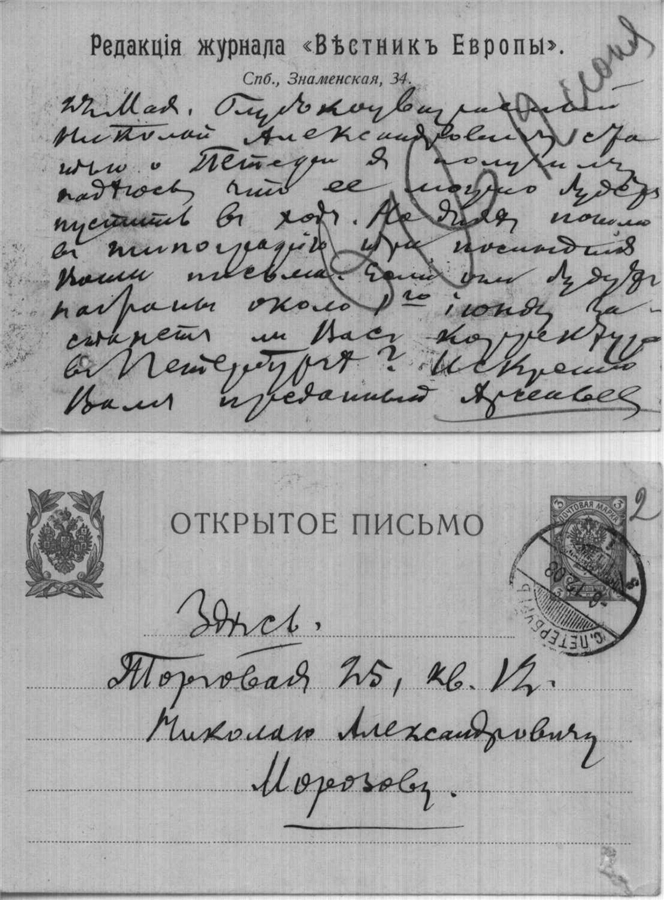 Редакція журнала «Вѣстникъ Европы».
Спб., Знаменская, 34.
Мая. Глубокоуважаемый
Николай Александровичъ, ста
тью о я получилъ,
надѣюсь, что ее можно будетъ
пустить въ ходъ. На дняхъ пошлю
въ типографію три послѣднія
Ваши письма. Если они будутъ
набраны около 1го іюня, за-
станетъ ли Васъ корректура
въ Петербургѣ? Искренно
Вамъ преданный Арсеньев
іюня
ОТКРЫТОЕ ПИСЬМО
2
3 3
ПОЧТОВАЯ МАРКА
С. ПЕТЕРБУРГЪ
Здѣсь.
Торговая 25, кв. 12.
Николаю Александровичу
Морозову.